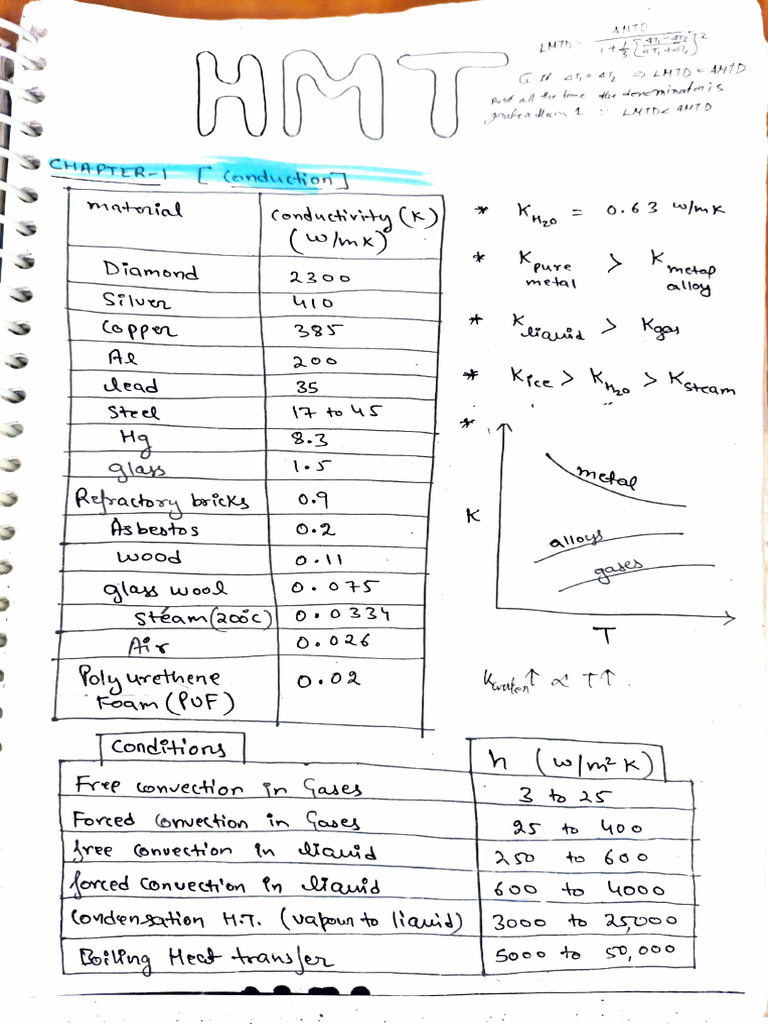 HMT
LMTD = AMTD / 1 + 1/3 [ΔT₁ - ΔT₂ / ΔT₁ + ΔT₂]²
If ΔT₁ = ΔT₂ ⇒ LMTD = AMTD
But all the time the denominator is
greater than 1 ∴ LMTD < AMTD
CHAPTER-1 [Conduction]
material | Conductivity (K) (W/mK)
Diamond | 2300
Silver | 410
Copper | 385
Al | 200
lead | 35
Steel | 17 to 45
Hg | 8.3
glass | 1.5
Refractory bricks | 0.9
Asbestos | 0.2
wood | 0.11
glass wool | 0.075
Steam (200°C) | 0.0334
Air | 0.026
Polyurethene Foam (PUF) | 0.02
* K H₂O = 0.63 W/mK
* K pure metal > K metal alloy
* K liquid > K gas
* K ice > K H₂O > K steam
*
K
metal
alloys
gases
T
K water ↑ ∝ T↑
Conditions | h (W/m²K)
Free convection in Gases | 3 to 25
Forced Convection in Gases | 25 to 400
free convection in liquid | 250 to 600
forced Convection in liquid | 600 to 4000
Condensation H.T. (vapour to liquid) | 3000 to 25,000
Boiling Heat transfer | 5000 to 50,000